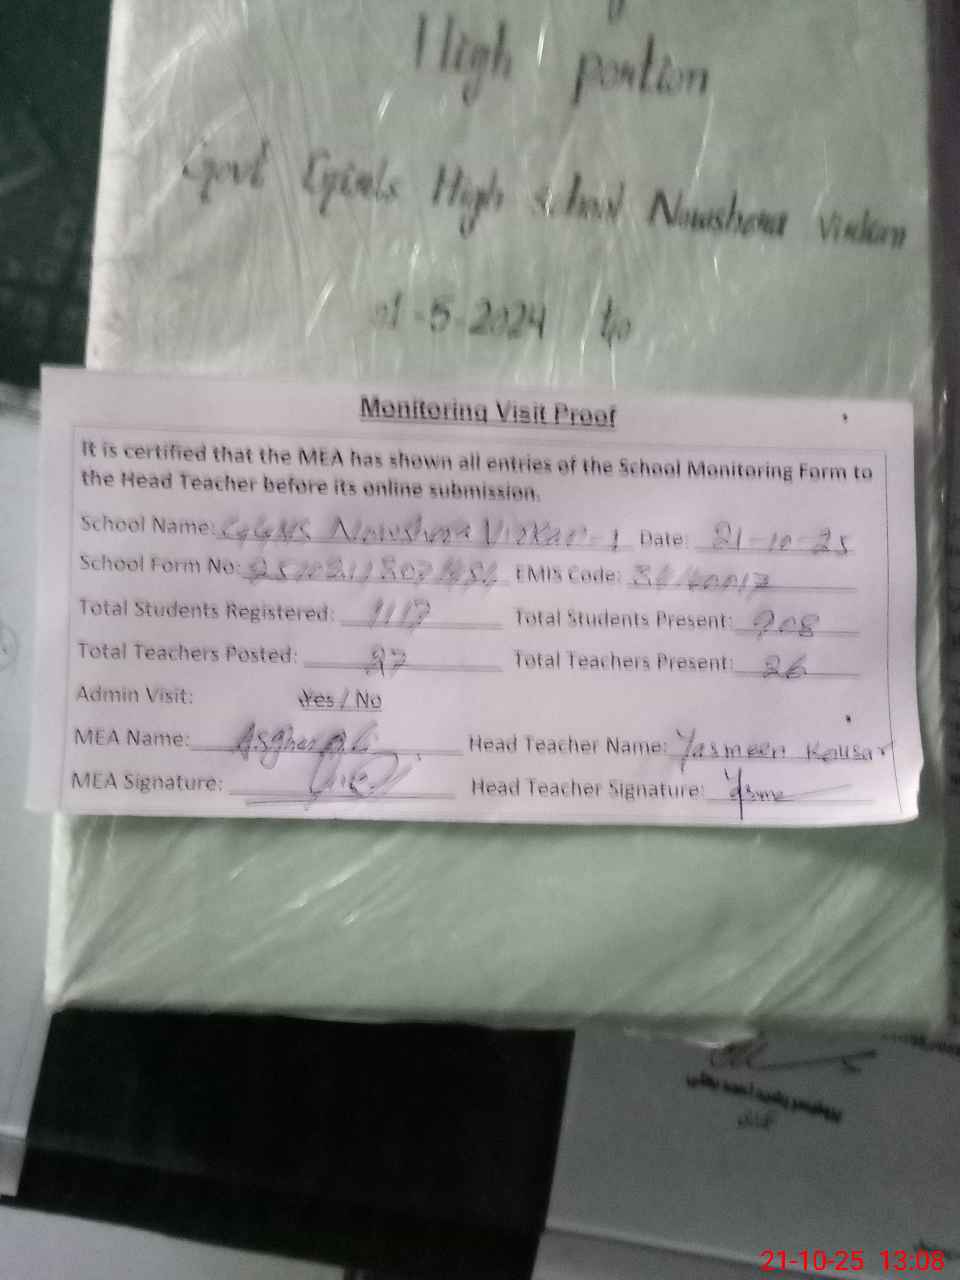 High portion
Govt Girls High school Nowshera Virkan
01-5-2024 to
Monitoring Visit Proof
It is certified that the MEA has shown all entries of the School Monitoring Form to
the Head Teacher before its online submission.
School Name: GGHS Nowshera Virkan-1 Date: 21-10-25
School Form No: EMIS Code:
Total Students Registered: 1117 Total Students Present: 908
Total Teachers Posted: 27 Total Teachers Present: 26
Admin Visit: Yes / No
MEA Name: Asghar Ali Head Teacher Name: Yasmeen Kousar
MEA Signature: Head Teacher Signature:
21-10-25 13:08